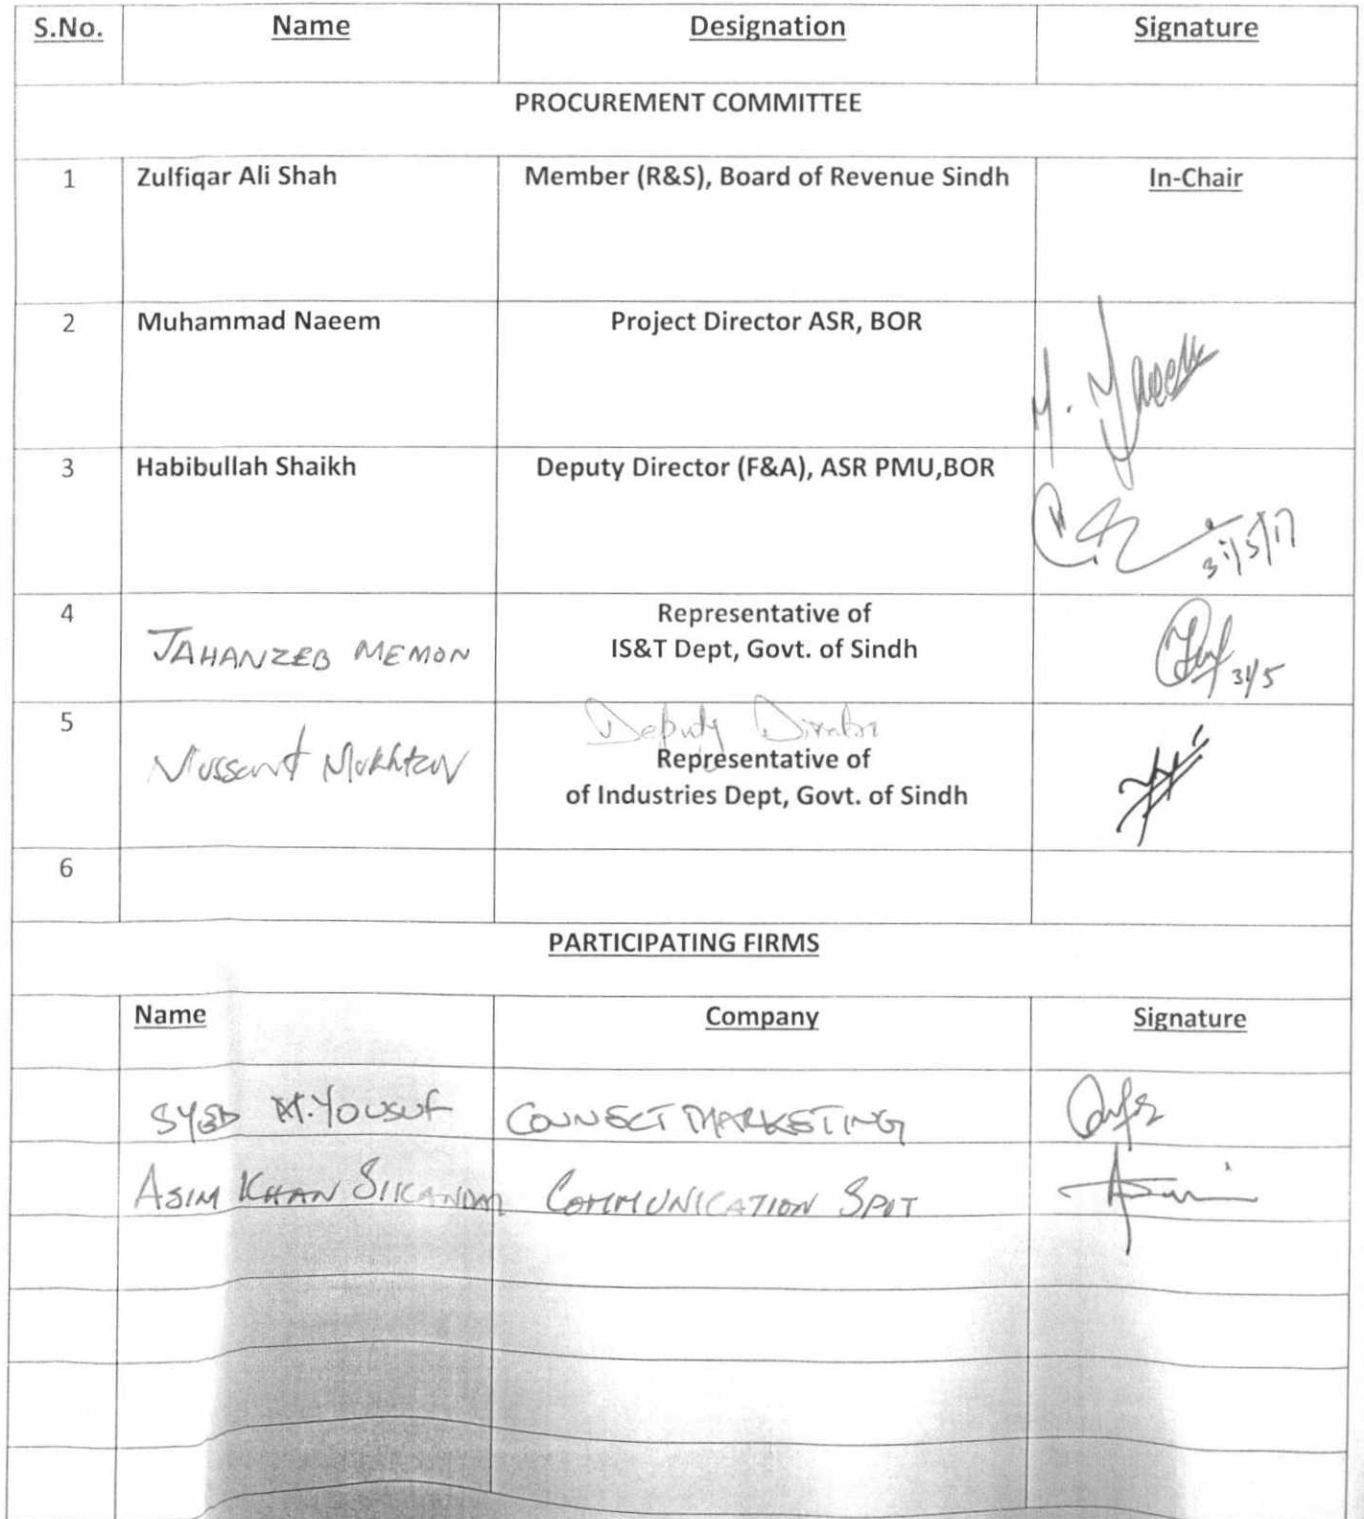 S.No. Name Designation Signature
PROCUREMENT COMMITTEE
1 Zulfiqar Ali Shah Member (R&S), Board of Revenue Sindh In-Chair
2 Muhammad Naeem Project Director ASR, BOR
M. Naeem
3 Habibullah Shaikh Deputy Director (F&A), ASR PMU,BOR
31/5/17
4 Representative of
JAHANZEB MEMON IS&T Dept, Govt. of Sindh
31/5
5 Deputy Director
Mukhtar Representative of
of Industries Dept, Govt. of Sindh
6
PARTICIPATING FIRMS
Name Company Signature
SYED M. YOUSUF CONNECT MARKETING
ASIM KHAN SIKANDAR COMMUNICATION SPOT